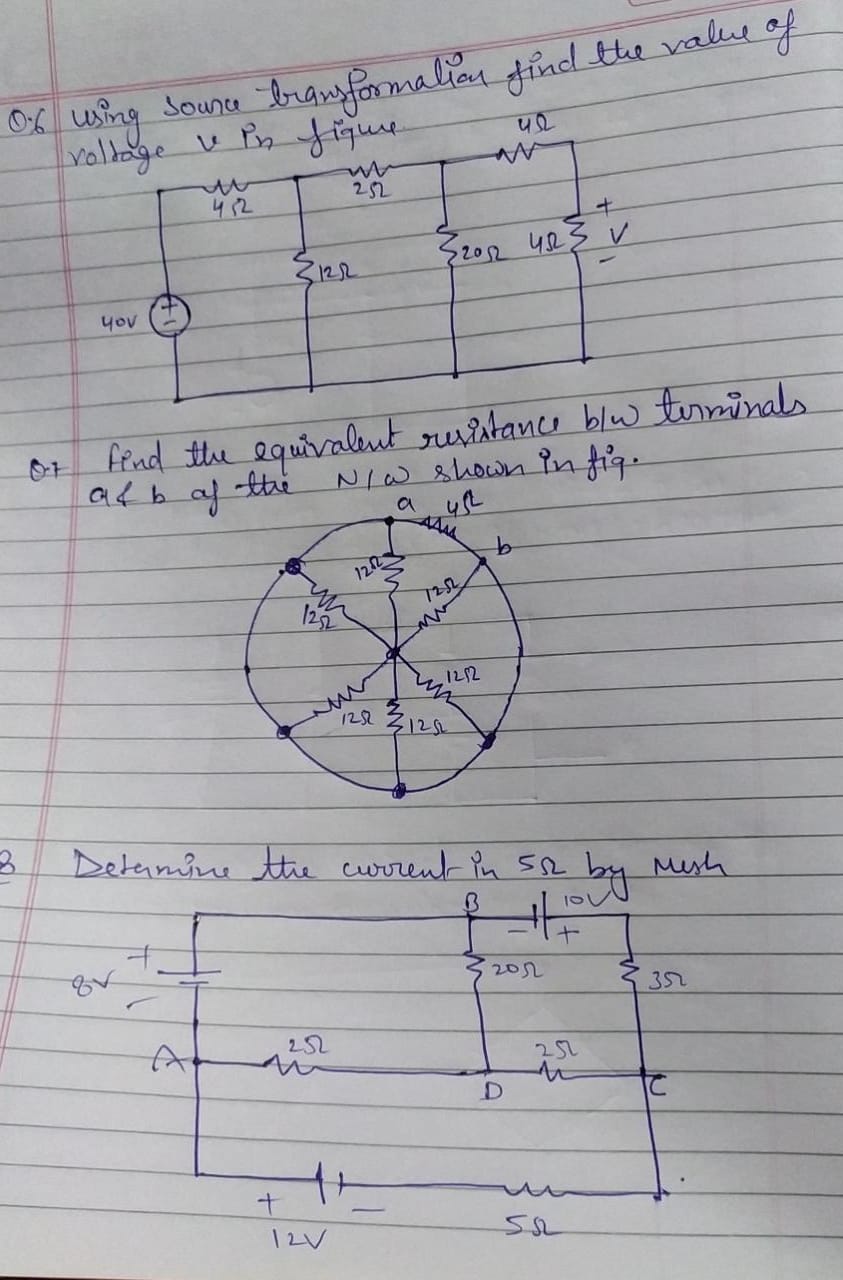 Q.6 using source transformation find the value of
voltage v in figure
4Ω
2Ω
4Ω
20Ω 4Ω + V -
12Ω
40V + -
Q.7 find the equivalent resistance b/w terminals
a & b of the N/W shown in fig.
a 4Ω
b
12Ω
12Ω
12Ω
12Ω
12Ω
12Ω
8 Determine the current in 5Ω by Mesh
B 10V
- +
+ 8V -
20Ω 3Ω
A 2Ω 2Ω
D C
+ -
12V 5Ω